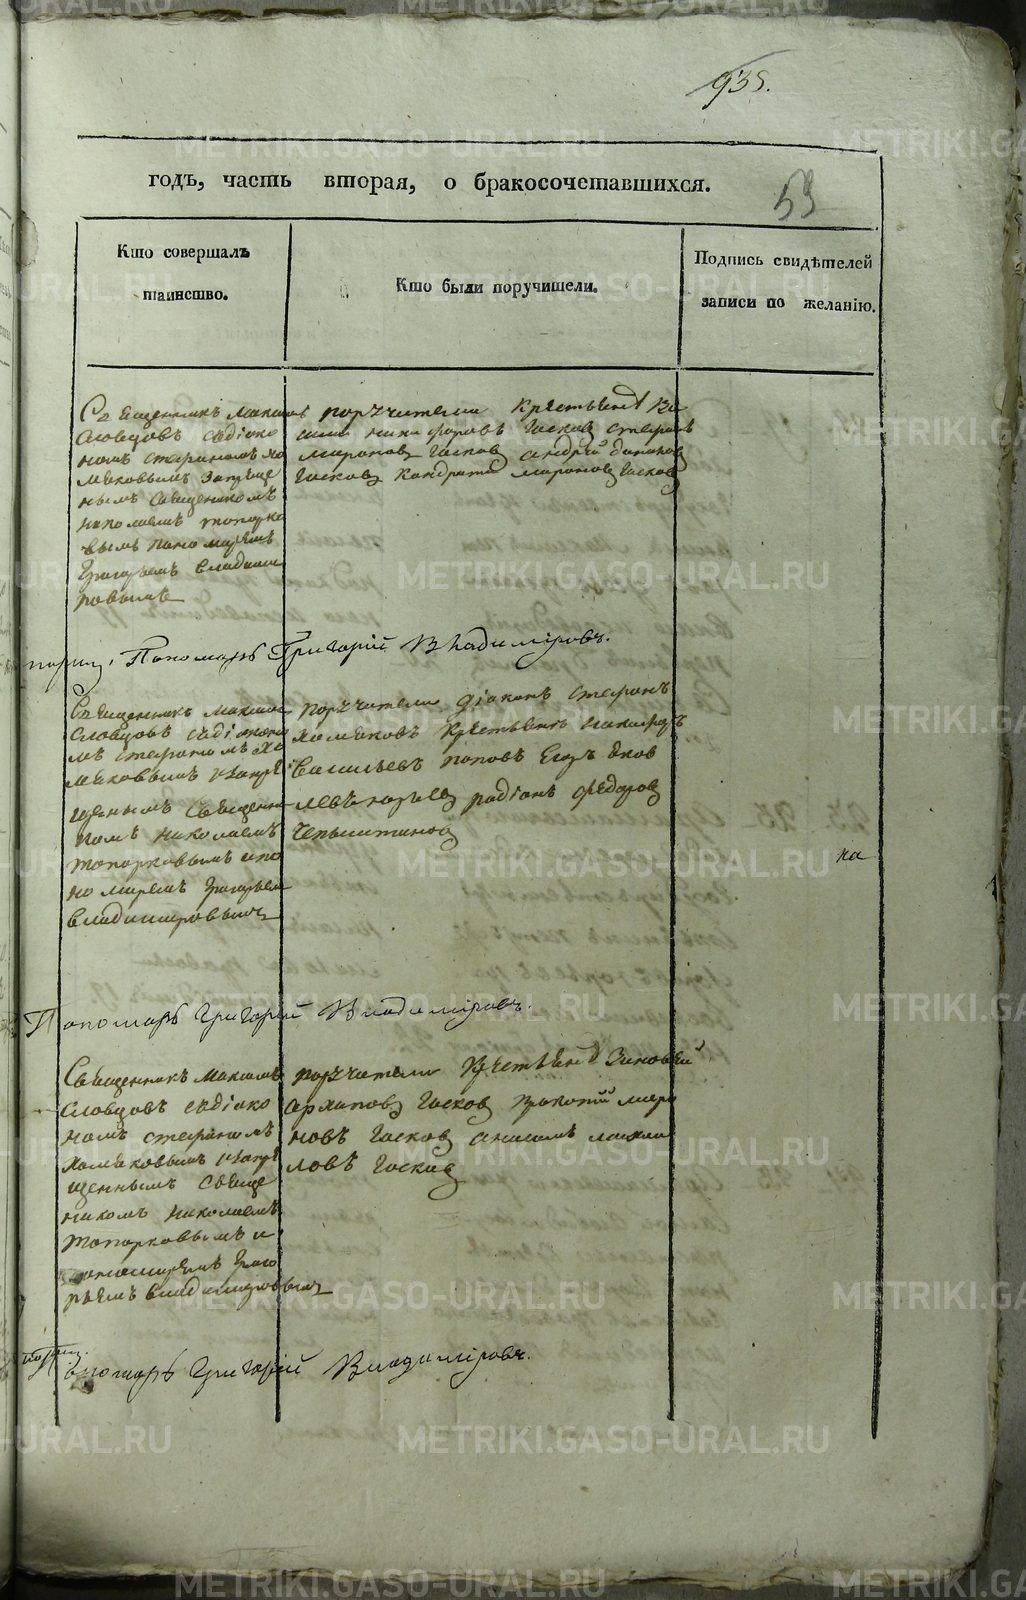 935.
годъ, часть вторая, о бракосочетавшихся.
53
Кто совершалъ
таинство.
Кто были поручители.
Подпись свидѣтелей
записи по желанію.
Священникъ Максимъ
Словцовъ садіако
номъ стефаномъ хо
мяковымъ
нымъ Священикомъ
николаемъ топорко
вымъ пономаремъ
Григорьемъ владими
ровымъ
порӱчители крестьяне Ва
сили никифоровъ Госковъ стефанъ
мироновъ Госковъ андрей
Госковъ Кондратей мироновъ Госковъ
Пономарь Григорій Владиміровъ.
Священникъ Максимъ
Словцовъ садіаконо
мъ стефаномъ хо
мяковымъ изапре
щенымъ Священни
комъ николаемъ
топорковымъ ипо
номаремъ Григорьемъ
владимировымъ
порӱчители діаконъ стефанъ
хомяковъ крестьянъ никифоръ
Васильевъ поповъ Егоръ Яков
левъ радіонъ федоровъ
на
Пономарь Григорій Владиміровъ.
Священникъ Максимъ
Словцовъ садіако
номъ стефаномъ
хомяковымъ изапре
щеннымъ Свяще
никомъ николаемъ
топорковымъ и
пономаремъ Григо
рьемъ владимировымъ
порӱчители крестьяне Зиновей
архиповъ Госковъ Прокопий миро
новъ Госковъ анисимъ михаи
ловъ Госковъ
Пономарь Григорій Владиміровъ.
METRIKI.GASO-URAL.RU